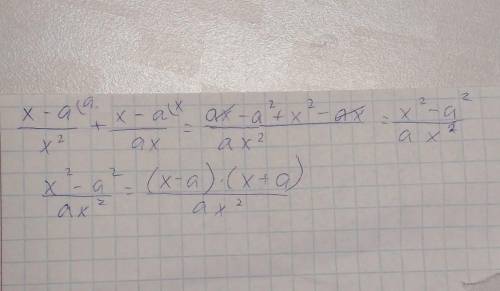 (x - a)/x² ⁽ᵃ + (x - a)/(ax) ⁽ˣ = (ax - a² + x² - ax)/(ax²) = (x² - a²)/(ax²)
(x² - a²)/(ax²) = ((x-a)·(x+a))/(ax²)